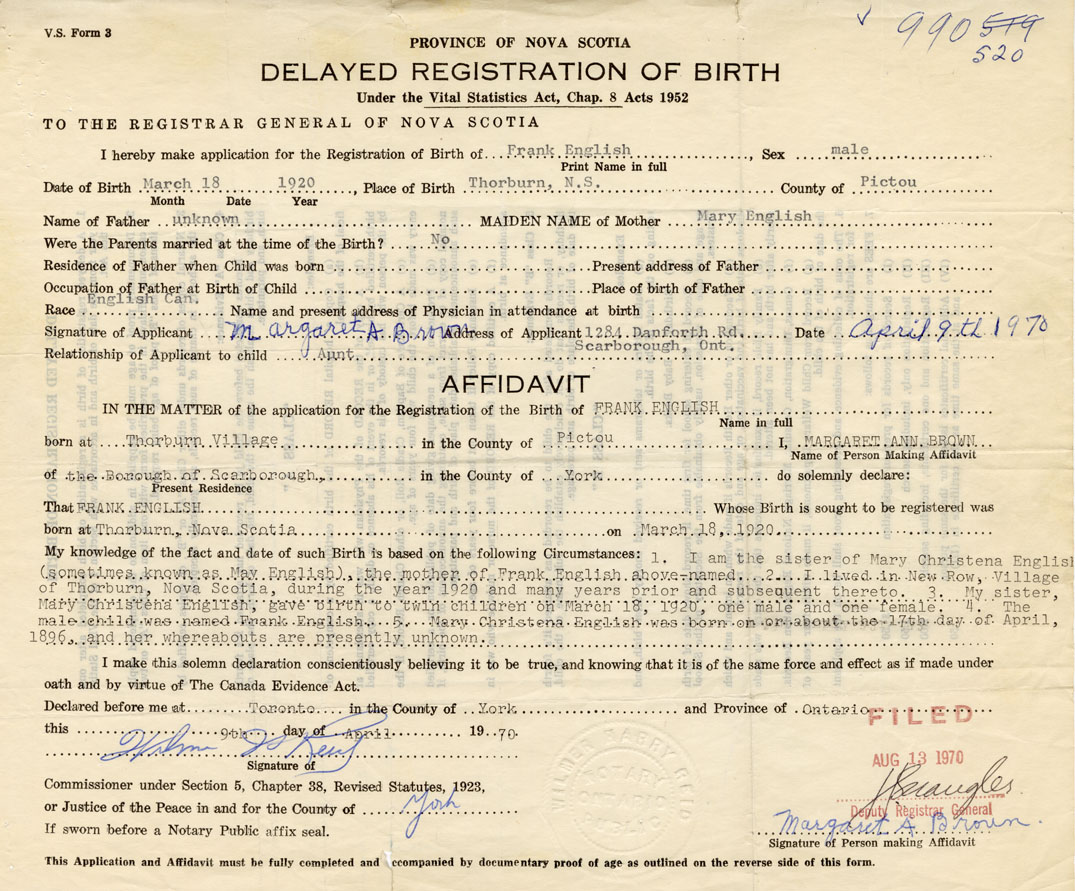 V.S. Form 3
990 519
520
PROVINCE OF NOVA SCOTIA
DELAYED REGISTRATION OF BIRTH
Under the Vital Statistics Act, Chap. 8 Acts 1952
TO THE REGISTRAR GENERAL OF NOVA SCOTIA
I hereby make application for the Registration of Birth of Frank English, Sex male
Print Name in full
Date of Birth March 18 1920, Place of Birth Thorburn, N.S. County of Pictou
Month Date Year
Name of Father unknown MAIDEN NAME of Mother Mary English
Were the Parents married at the time of the Birth? No
Residence of Father when Child was born Present address of Father
Occupation of Father at Birth of Child Place of birth of Father
English Can.
Race Name and present address of Physician in attendance at birth
Signature of Applicant Margaret A. Brown Address of Applicant 1284 Danforth Rd. Date April 9th 1970
Scarborough, Ont.
Relationship of Applicant to child Aunt
AFFIDAVIT
IN THE MATTER of the application for the Registration of the Birth of FRANK ENGLISH
Name in full
born at Thorburn Village in the County of Pictou I, MARGARET ANN BROWN
Name of Person Making Affidavit
of the Borough of Scarborough, in the County of York do solemnly declare:
Present Residence
That FRANK ENGLISH Whose Birth is sought to be registered was
born at Thorburn, Nova Scotia on March 18, 1920.
My knowledge of the fact and date of such Birth is based on the following Circumstances: 1. I am the sister of Mary Christena English
(sometimes known as May English), the mother of Frank English above-named. 2. I lived in New Row, Village
of Thorburn, Nova Scotia, during the year 1920 and many years prior and subsequent thereto. 3. My sister,
Mary Christena English, gave birth to twin children on March 18, 1920, one male and one female. 4. The
male child was named Frank English. 5. Mary Christena English was born on or about the 17th day of April,
1896, and her whereabouts are presently unknown.
I make this solemn declaration conscientiously believing it to be true, and knowing that it is of the same force and effect as if made under
oath and by virtue of The Canada Evidence Act.
Declared before me at Toronto in the County of York and Province of Ontario
this 9th day of April 19 70.
Signature of
FILED
AUG 13 1970
Deputy Registrar General
Commissioner under Section 5, Chapter 38, Revised Statutes, 1923,
or Justice of the Peace in and for the County of York
If sworn before a Notary Public affix seal.
Margaret A Brown.
Signature of Person making Affidavit
This Application and Affidavit must be fully completed and ccompanied by documentary proof of age as outlined on the reverse side of this form.